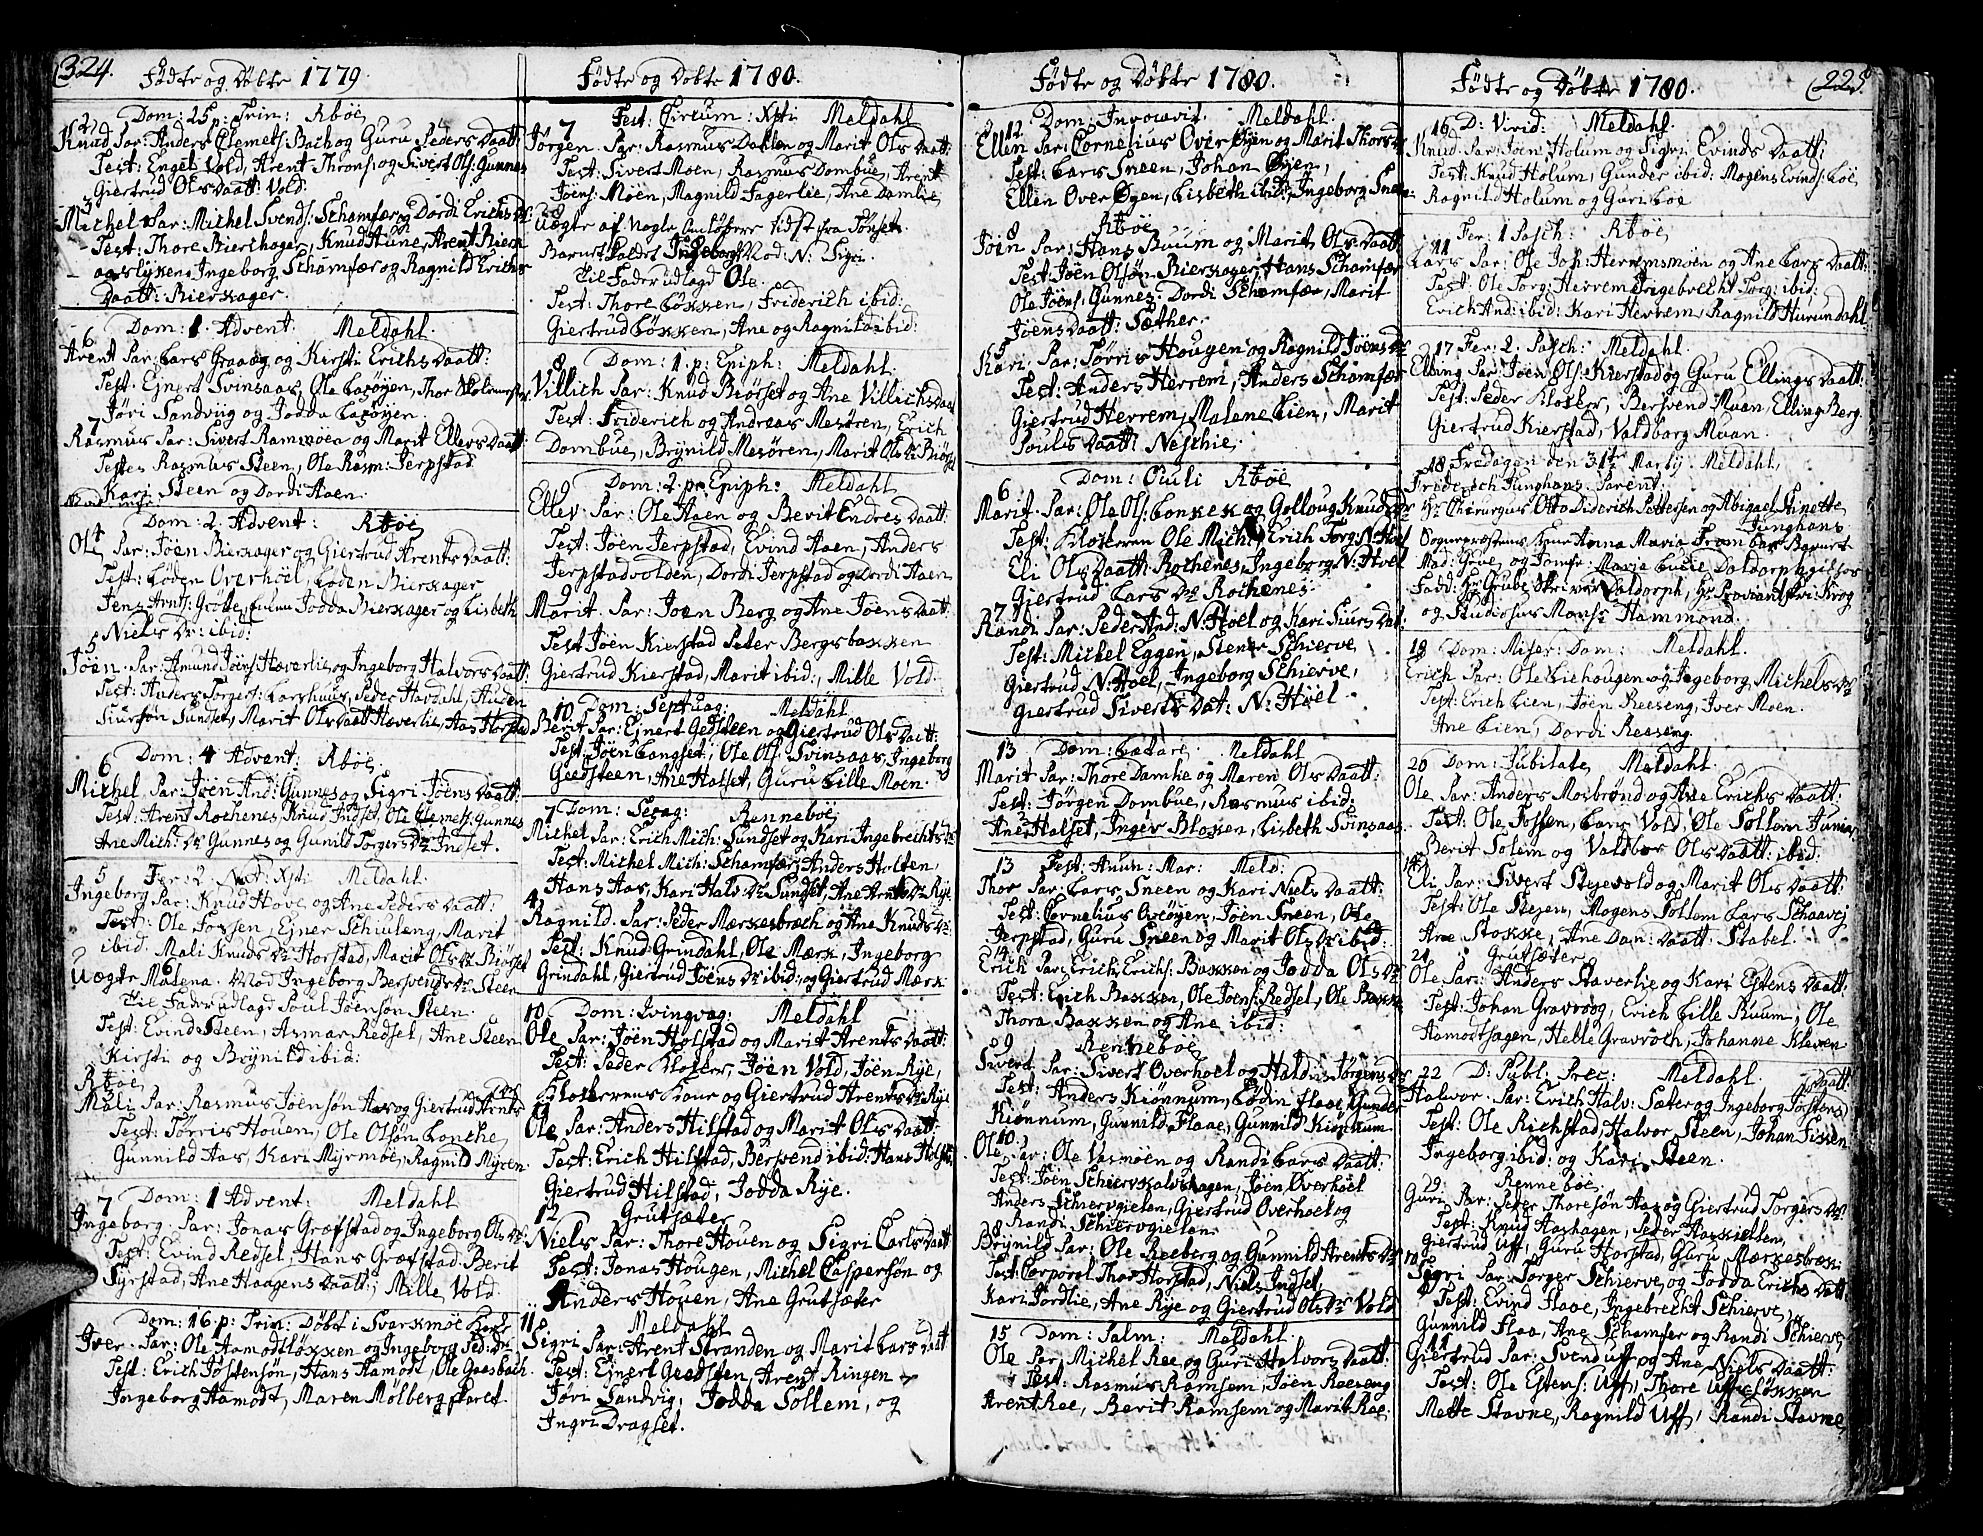 324.
Fødte og Døbte 1779.
Dom: 25 p: Trin: Rböe
Knud Par: Anders Clemets: Bach og Guru Peders Daatt:
Test: Engel Vold, Arent Throns: og Sivert Ols: Gunnes
Giertrud Ols Daatt: Vold.
3
Michel Par: Michel Svends: Schamfær og Dordi Erichs Dr:
Test: Thore Bierchager, Knud Hune, Arent Rien
Ingeborg Schamfær og Ragnild Erichs
Daatt: Bierskager.
Dom: 1. Advent: Meldahl.
6
Arent Par: Lars Graaøg og Kirsti Erichs Daatt:
Test. Ejnert Svinsaas, Ole Lasøyen, Thor
Jöri Sandvig og Jodda Lasøyen.
7
Rasmus Par: Sivert Rammöen og Marit Ellevs Daatt:
Testes Rasmus Steen, Ole Rasm: Jerpstad
Kari Steen og Dordi Haen.
Dom: 2. Advent: Rböe
4
Ole Par: Jöen Bierskager og Giertrud Arents Daatt:
Test: Loden Overhöel, Loden Bierskager
Jens Arnts: Grötte, Jodda Bierskager og Lisbeth
Niels Dr: ibid:
5
Jöen Par: Amund Jöens: Haverlie og Ingeborg Halvors Daatt:
Test: Anders Torgers: Larshuus, Peder Hardahl, Auden
Siursön Sundset, Marit Ols Daatt Haverlie, Aas Horstad
Dom: 4 Advent: Rböe.
6
Michel Par: Jöen And: Gunnes og Sigri Jöens Daatt:
Test: Arent Rothenes, Knud Indset, Ole Clemets: Gunnes
Ane Mich: Dr Gunnes og Gunild Torgers Dr Indset.
5 Fer: 2. Nat: Xsti Meldahl.
Ingeborg Par: Knud Hove og Ane Peders Daatt:
Test: Ole Fossen, Ejner Schiuleng, Marit
ibid: Mali Knuds Dr Horstad, Marit Ols Dr Biørset
Uægte Malena. Mod Ingeborg Bersvends Dr Steen
Til Fader udlagt Poul Jöensön Steen.
Test: Evind Steen, Asmar Redsel, Ane Steen
Kirsti og Brynild ibid:
Rböe
5
Mali Par: Rasmus Jöensön Aas og Giertrud Arents
Test: Törris Houen, Ole Olsön Lonche
Gunnild Aas, Kari Myrmöe, Ragnild Myren
7 Dom: 1 Advent: Meldahl
Ingeborg Par: Jonas Græfstad og Ingeborg Ols Dr:
Test: Evind Redsel, Hans Græfstad. Berit
Syrstad, Ane Haagens Daatt:, Mille Vold.
Dom: 16 p: Trin: Døbt i Svarkmöe
Iver Par: Ole Aamodtløkken og Ingeborg Ped: Dr
Test: Erich Jöstensön, Hans Aamodt, Ole Gaasbach
Ingeborg Aamodt, Maren Mölberg
Fødte og Døbte 1780.
Fest: Circum: Xsti Meldahl
7
Jörgen Par: Rasmus Dahlen og Marit Ols Daatt:
Test: Sivert Moen, Rasmus Dombue, Arent
Jöens: Möen, Magnild Fagerlie, Ane Damlie
Uægte af Nogle Omløbere Vidst fra Tönset
Barnet kaldet Ingeborg Mod: N: Sigri
Til Fader udlagd Ole.
Test: Thore Løkken, Friderich ibid:
Giertrud Løkken, Ane og Ragnild ibid:
8 Dom: 1. p: Epiph: Meldahl.
Villich Par: Knud Biørset og Ane Villichs Daat
Test: Friderich og Andreas Mesøren, Erich
Dombue, Brynild Mesøren, Marit Ols Dr Biørset
Dom: 2. p: Epiph: Meldahl
9
Ellev Par: Ole Haen og Berit Endres Daatt:
Test: Jöen Jerpstad, Evind Haen, Anders
Jerpstadvolden, Dordi Jerpstad og Dordi Haen
9
Marit Par: Joen Berg og Ane Jöens Daatt:
Test: Jöen Kierstad Peter Bergsbakken
Giertrud Kierstad, Marit ibid:, Mille Vold.
10 Dom: Septuag: Meldahl.
Berit Par: Ejnert Gedsteen og Giertrud Ols Daatt:
Test: Jöen Langset, Ole Ols: Svinsaas, Ingeborg
Geedsteen, Ane Halset, Guru Lille Moen.
7 Dom: Sexag: Renneböe
Michel Par: Erich Mich: Sundset og Kari Ingebrechts Dr
Test: Michel Mich: Schamfær, Anders Holten
Hans Aas, Kari Halv: Dr Sundset, Ane Arents Dr Rye
4
Ragnild Par: Peder Merkesbrech og Ane Knuds Dr:
Test: Knud Grindahl, Ole Mærk, Ingeborg
Grindahl, Giertrud Jöens Dr ibid:, og Giertrud Mærk
10 Dom: Qvinqvag: Meldahl
Ole Par: Jöen Holstad og Marit Arents Daatt:
Test: Peder Kloker, Jöen Vold, Jöen Rye,
Klokerens Kone og Giertrud Arents Dr Rye
11
Ole Par: Anders Hilstad og Marit Ols Daatt:
Test: Erich Hilstad, Bersvend ibid: Hans Holstad
Giertrud Hilstad, Jodda Rye.
12 Grutsæter
Niels Par: Thore Houen og Sigri Carls Daatt
Test: Jonas Hougen, Michel Caspersön og
Anders Houen, Ane Grutsæter
11 Meldahl
Sigri Par: Arent Stranden og Marit Lars Datt
Test: Ejnert Geedsten, Arent Ringen
Jöri Sandvig, Jodda Sollem, og
Ingri Dragset.
Fødte og Døbte 1780.
12 Dom: Invocavit. Meldahl.
Ellen Par: Cornelius Over Øyen og Marit Thors Dr
Test: Lars Sneen, Johan Øyen,
Ellen Over Øyen, Lisbeth ibid:, Ingeborg Sneen
8 Rböe
Jöen Par: Hans Ruum og Marit Ols Daatt
Test: Jöen Olsön Bierskager, Hans Schamfær
Ole Jöens: Gunnes. Dordi Schamfær, Marit
Jöens Daatt: Sæther.
5
Kari Par: Törris Hougen og Ragnild Jöens Dr
Test: Anders Herrem, Anders Schamfær
Giertrud Herrem, Malene Lien, Marit
Pouls Daatt: Neschie.
Dom: Oculi Rböe
6
Marit Par: Ole Ols: Lonkek og Gollaug Knuds Dr
Test: Klokeren Ole Mich: Erich Torg: N: Hoel
Eli Ols Daatt: Rothenes, Ingeborg N: Hoel
Giertrud Lars Dr Rothenes.
7
Randi Par: Peder And: N: Hoel og Kari Siurs Dat:
Test: Michel Eggen, Stener Schierve
Giertrud N: Hoel, Ingeborg Schierve,
Giertrud Siverts Dat: N: Höel
13 Dom: Lætare: Meldahl
Marit Par: Thore Damlie og Maren Ols Daatt:
Test: Jörgen Dombue, Rasmus ibid:
Ane Halset, Inger Blokken, Lisbeth Svinsaas
13 Fest: Anun: Mar: Meld:
Thor Par: Lars Sneen og Kari Niels Daatt:
Test: Cornelius Overöyen, Jöen Sneen, Ole
Jerpstad, Guru Sneen og Marit Ols Dr ibid:
14
Erich Par: Erich Erichs: Bakken og Jodda Ols Dr
Test: Erich Bakken, Ole Jöens: Redsel, Ole Bakken
Thora Bakken og Ane ibid:
9 Renneböe
Sivert Par: Sivert Overhoel og Haldis Jörgens Dr
Test: Anders Kiönnum, Loden Flaae, Gunder
Kiönnum, Gunnild Flaae, Gunnild Kiönnum
10
Ole Par: Ole Vasmöen og Randi Lars Daatt:
Test: Jöen Schiervskalvshagen, Jöen Overhöel
Anders Schiervgielen, Giertrud Overhoel og
Randi Schiervgielen.
8
Brynild Par: Ole Reeberg og Gunnild Arents Dr
Test: Corporal Thor Horstad, Niels Indset,
Kari Jordlie, Ane Rye og Giertrud Ols Dr Vold
15 Dom: Palm: Meldahl.
Ole Par: Michel Ree og Guri Halvors Daatt:
Test: Rasmus Ramsem, Jöen Reeseng
Arent Ree, Berit Ramsem og Marit Ree.
Fødte og Døbte 1780.
225.
16 D: Virid: Meldahl.
Knud Par: Jöen Holum og Sigri Evinds Daatt:
Test: Knud Holum, Gunder ibid: Mogens Evinds: Löe
Ragnild Holum og Guri Löe
Fer: 1 Pasch: Rböe
11
Lars Par: Ole Joh: Herremsmöen og Ane Lars Daatt:
Test: Ole Torg: Herrem Ingebrecht Torg: ibid:
Erich And: ibid: Kari Herrem, Ragnild Hurundahl
17 Fer: 2. Pasch: Meldahl.
Elling Par: Jöen Ols: Kierstad og Guru Ellings Daatt:
Test: Peder Kloker, Bersvend Muan, Elling Berg
Giertrud Kierstad, Valdborg Muan.
18 Fredagen den 31te Martij Meldahl,
Friderich Junghans. Parent:
Hr Chirurgus Otto Diderich Pettersen og Abigael Anette
Junghans
Sognepræstens Kone Anna Maria From bar Barnet
Mad: Grue, og Jomfr: Maria Lucie Daldorph
Fadd: Hr Grube Skriver Daldorph, Hr Proviantskri: Krog
og Studiosus Monsr Hammond.
19 Dom: Miser: Dom: Meldahl.
Erich Par: Ole Liehougen og Ingeborg Michels Dr
Test: Erich Lien, Jöen Reeseng, Iver Moen.
Ane Lien, Dordi Reeseng
20 Dom: Jubilate Meldahl.
Ole Par: Anders Mosbrönd og Ane Erichs Daatt:
Test: Ole Fossen, Lars Vold, Ole Sollom Junior
Berit Solem og Valdbor Ols Daatt: ibid:
14
Eli Par: Sivert Stejevold og Marit Ols Daatt:
Test: Ole Stejen, Mogens Sollom Lars Schaavej
Ane Stokke, Ane Dan: Daatt: Stabel.
21 Grutsæter
Ole Par: Anders Staverlie og Kari Estens Daatt:
Test: Johan Gravroog, Erich Lille Ruum, Ole
Aamodtsagen, Helle Gravroch, Johanne Kleven
22 D: Publ: Prec: Meldahl. Daatt:
Halvor Par: Erich Halv: Sæter og Ingeborg Jörstens
Test: Ole Richstad, Halvor Steen, Johan
Ingeborg ibid: og Kari Steen.
Renneböe
9
Guri Par: Peter Thoresön Aas og Giertrud Torgers Dr:
Test: Knud Aashagen, Peder Haskietten
Giertrud Uff, Guru Horstad, Guru Mærkesbrech
10
Sigri Par: Torger Schierve, og Jodda Erichs Datt
Test: Evind Flaae, Ingebrecht Schierve,
Gunnild Flaa, Ane Schamfer og Randi Schierve
11
Giertrud Par: Svend Uff og Ane Niels Daatt:
Test: Ole Estens: Uff, Thore Uffsløkken
Mette Stavne, Ragnild Uff, Randi Stavne